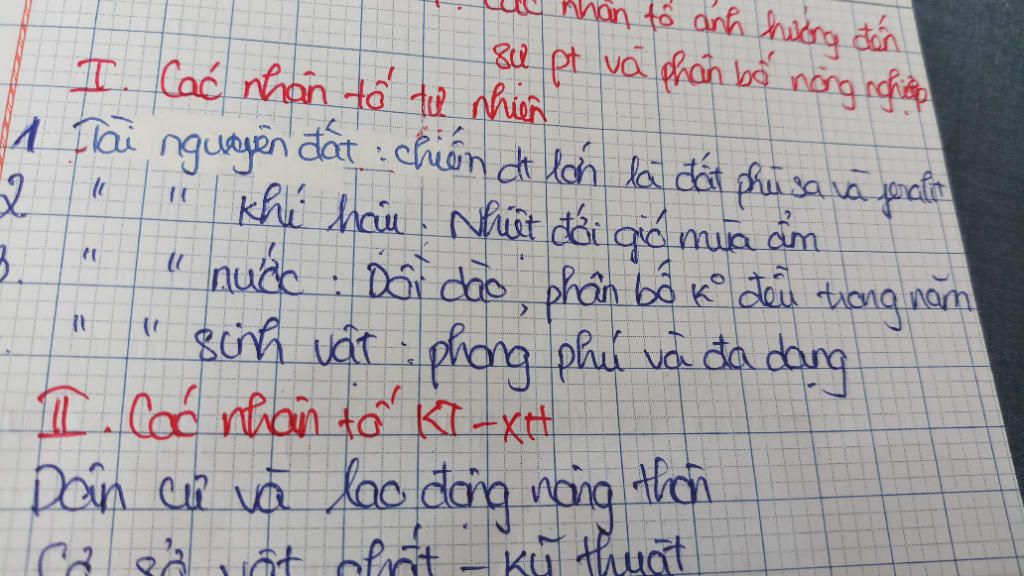 Các nhân tố ảnh hưởng đến
sự pt và phân bố nông nghiệp
I. Các nhân tố tự nhiên
1 Tài nguyên đất : chiếm dt lớn là đất phù sa và feralit
2 " " khí hậu : Nhiệt đới gió mùa ẩm
3. " " nước : Dồi dào, phân bố k° đều trong năm
" " sinh vật : phong phú và đa dạng
II. Các nhân tố KT - XH
Dân cư và lao động nông thôn
Cơ sở vật chất - kỹ thuật